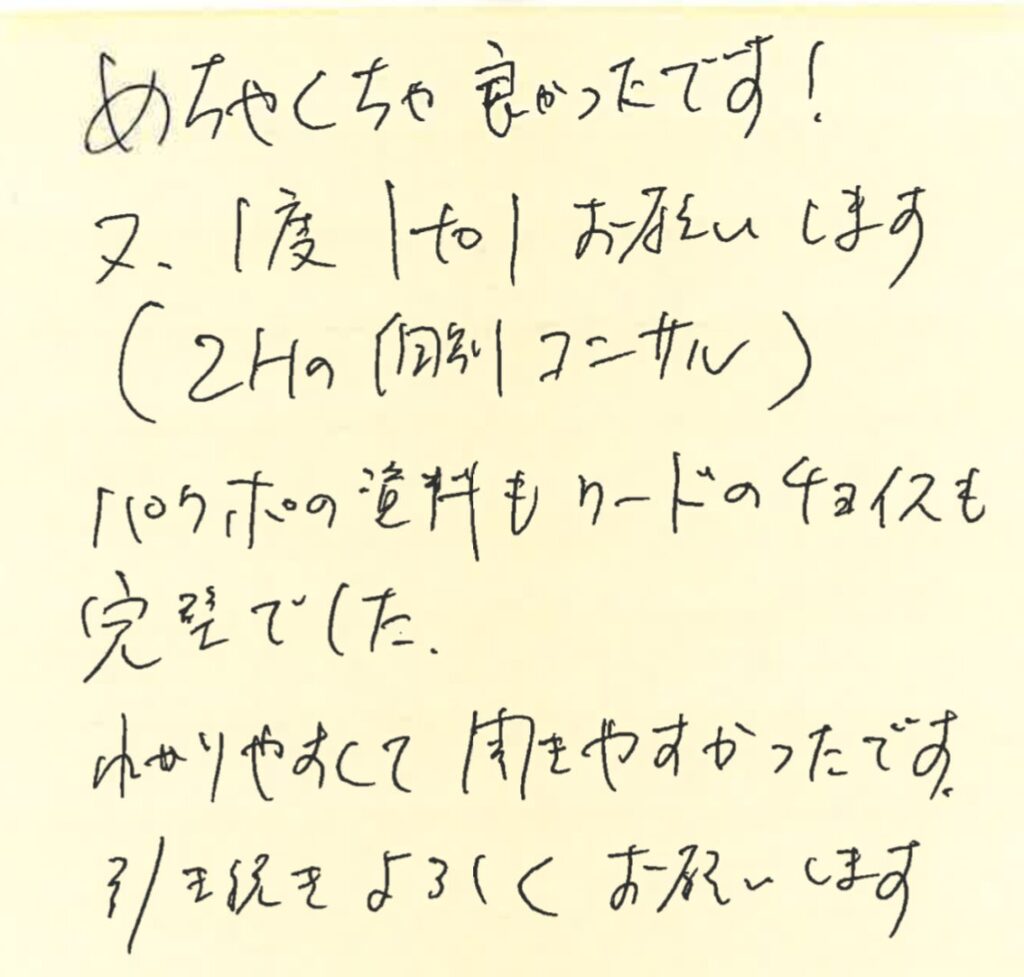 めちゃくちゃ良かったです!
又、1度 1to1 お願いします
(2Hの個別コンサル)
パワポの資料もワードのチョイスも
完璧でした.
わかりやすくて聞きやすかったです.
引き続きよろしくお願いします